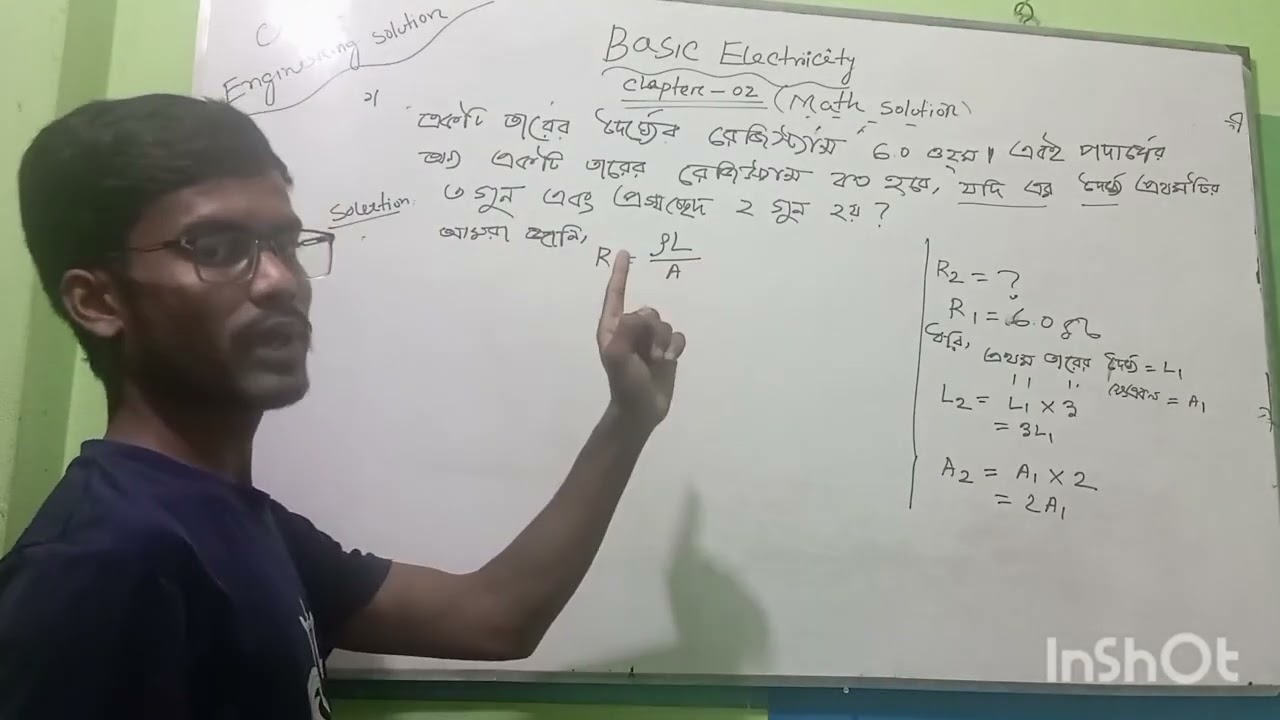 Engineering solution
Basic Electricity
Chapter-02 (Math solution)
২। একটি তারের দৈর্ঘ্যের রেজিস্ট্যান্স 6.0 ওহম। একই পদার্থের
অন্য একটি তারের রেজিস্ট্যান্স কত হবে, যদি এর দৈর্ঘ্য প্রথমটির
৩ গুন এবং প্রস্থচ্ছেদ ২ গুন হয় ?
Solution:
আমরা জানি,
R = ρL/A
R2 = ?
R1 = 6.0 Ω
ধরি,
প্রথম তারের দৈর্ঘ্য = L1
" " = A1
L2 = L1 × 3
= 3L1
A2 = A1 × 2
= 2A1
InShOt